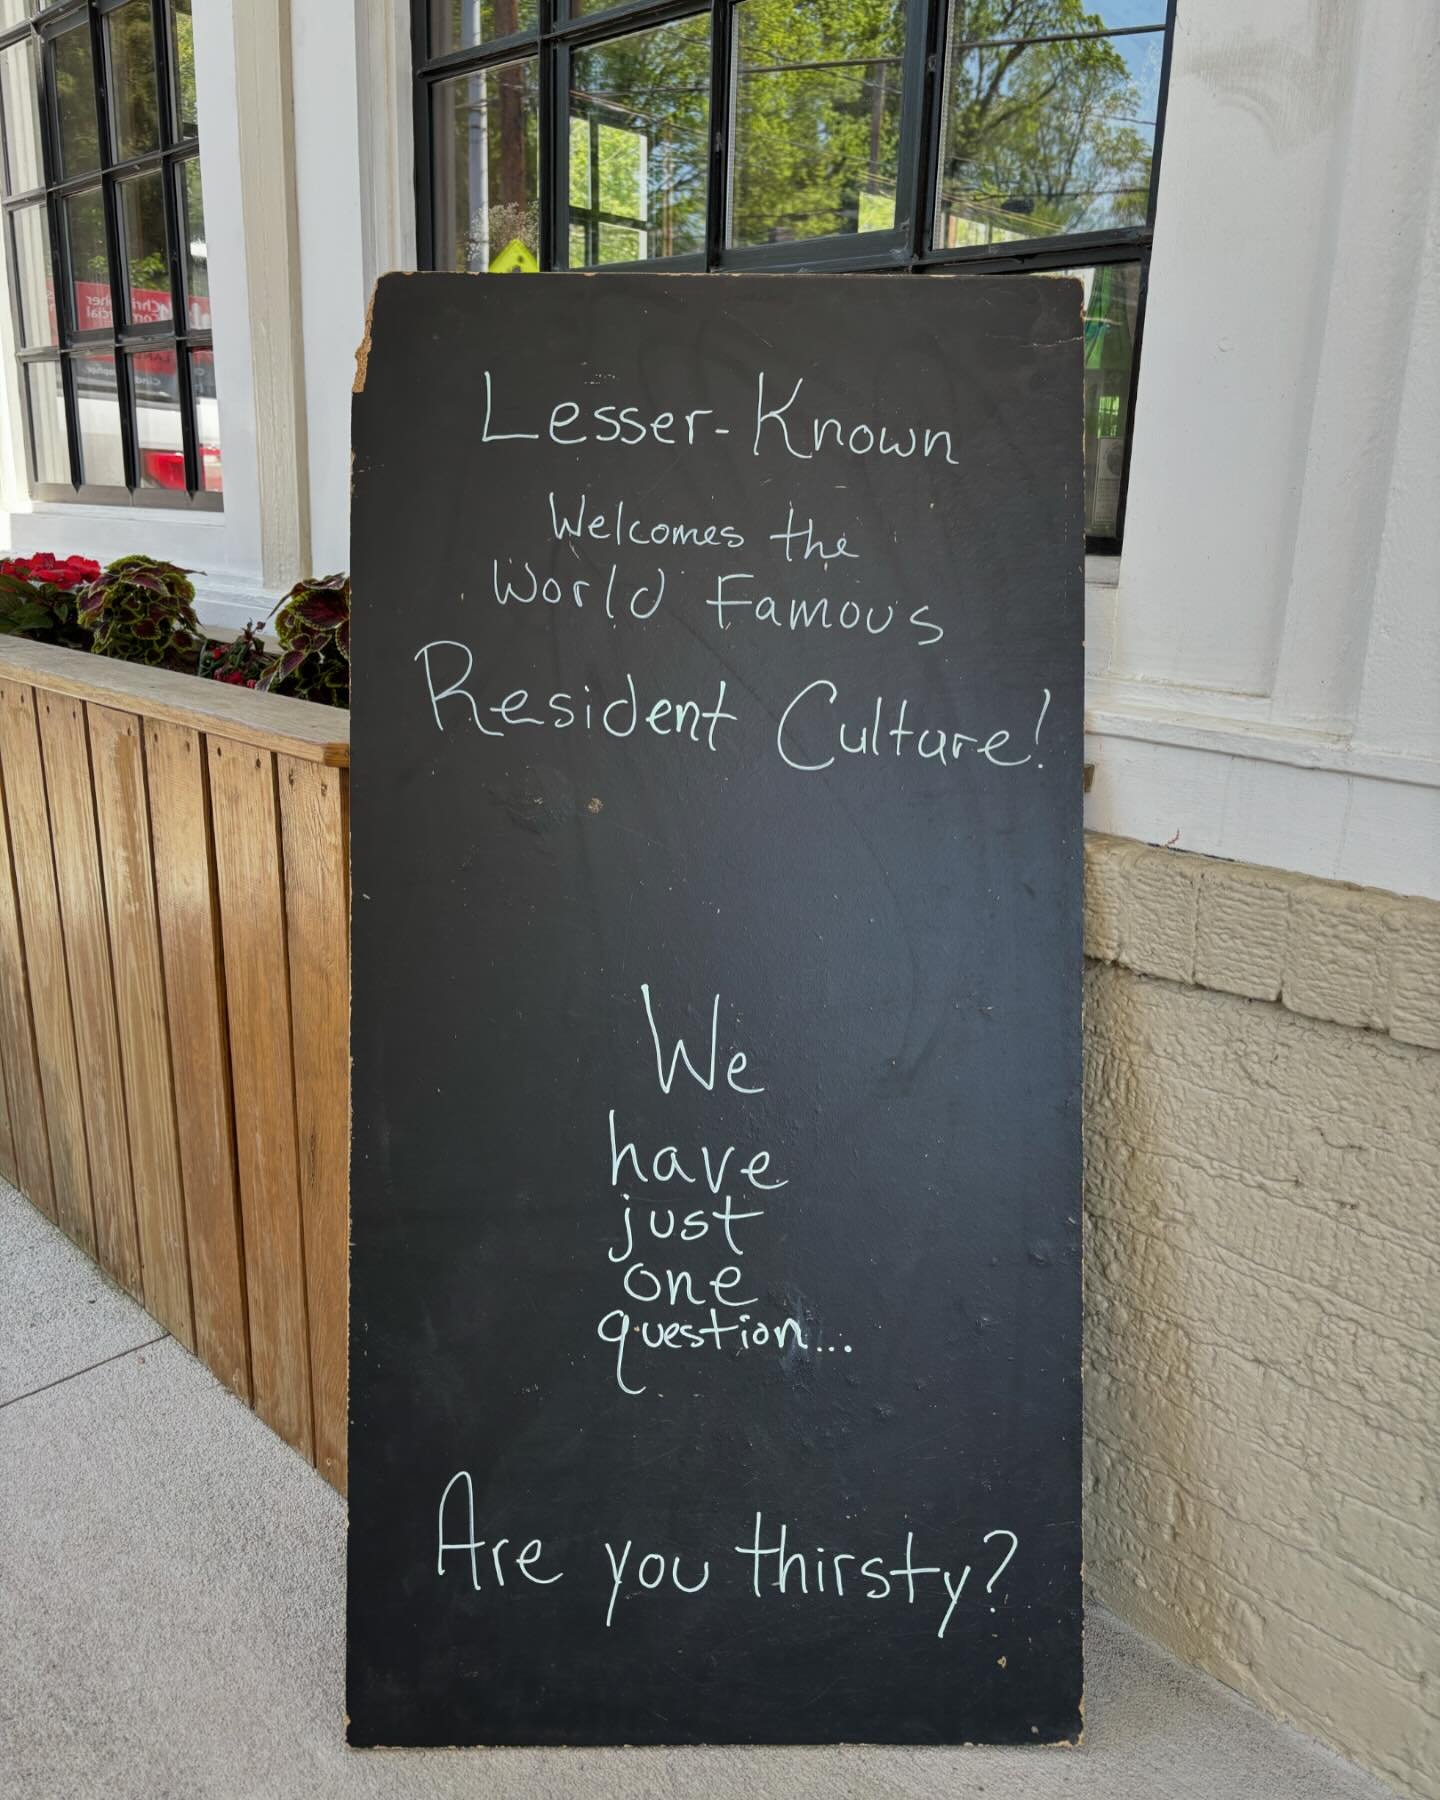 Lesser-Known
Welcomes the
World Famous
Resident Culture!
We
have
just
one
question...
Are you thirsty?